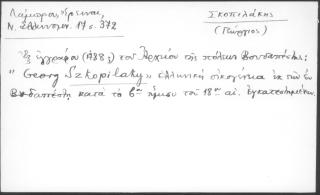 Λάμπρος, Έρευναι,
Ν. Ελληνομν. 17 σ. 372
Σκοπελάκης
(Γεώργιος)
Ἐξ ἐγγράφου (1788;) τοῦ Ἀρχείου τῆς πόλεως Βουδαπέστης:
"Georg Szkopilaky» ἑλληνικὴ οἰκογένεια ἐκ τῶν ἐν
Βουδαπέστῃ κατὰ τὸ β' ἥμισυ τοῦ 18ου αἰ. ἐγκατεστημένων.